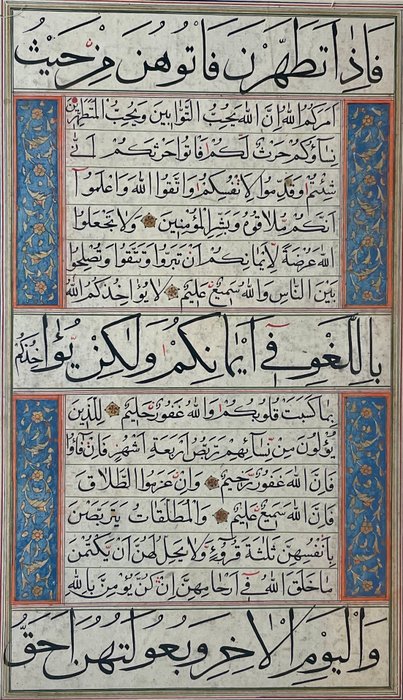 فَاِذَا تَطَهَّرْنَ فَاتُوهُنَّ مِنْ حَيْثُ
اَمَرَكُمُ اللهُ اِنَّ اللهَ يُحِبُّ التَّوَّابِينَ وَيُحِبُّ المُتَطَهِّرِينَ
نِسَاؤُكُمْ حَرْثٌ لَكُمْ فَاتُوا حَرْثَكُمْ اَنّٰى
شِئْتُمْ وَقَدِّمُوا لِاَنْفُسِكُمْ وَاتَّقُوا اللهَ وَاعْلَمُوا
اَنَّكُمْ مُلَاقُوهُ وَبَشِّرِ المُؤْمِنِينَ وَلَا تَجْعَلُوا
اللهَ عُرْضَةً لِاَيْمَانِكُمْ اَنْ تَبَرُّوا وَتَتَّقُوا وَتُصْلِحُوا
بَيْنَ النَّاسِ وَاللهُ سَمِيعٌ عَلِيمٌ لَا يُؤَاخِذُكُمُ اللهُ
بِاللَّغْوِ فِى اَيْمَانِكُمْ وَلٰكِنْ يُؤَاخِذُكُمْ
بِمَا كَسَبَتْ قُلُوبُكُمْ وَاللهُ غَفُورٌ حَلِيمٌ لِلَّذِينَ
يُؤْلُونَ مِنْ نِسَائِهِمْ تَرَبُّصُ اَرْبَعَةِ اَشْهُرٍ فَاِنْ فَاؤُا
فَاِنَّ اللهَ غَفُورٌ رَحِيمٌ وَاِنْ عَزَمُوا الطَّلَاقَ
فَاِنَّ اللهَ سَمِيعٌ عَلِيمٌ وَالْمُطَلَّقَاتُ يَتَرَبَّصْنَ
بِاَنْفُسِهِنَّ ثَلٰثَةَ قُرُوءٍ وَلَا يَحِلُّ لَهُنَّ اَنْ يَكْتُمْنَ
مَا خَلَقَ اللهُ فِى اَرْحَامِهِنَّ اِنْ كُنَّ يُؤْمِنَّ بِاللهِ
وَالْيَوْمِ الْاٰخِرِ وَبُعُولَتُهُنَّ اَحَقُّ